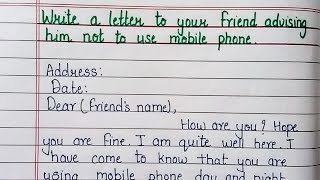 Write a letter to your friend advising
him not to use mobile phone.
Address:
Date:
Dear (friend's name),
How are you? Hope
you are fine. I am quite well here. I
have come to know that you are
using mobile phone day and night